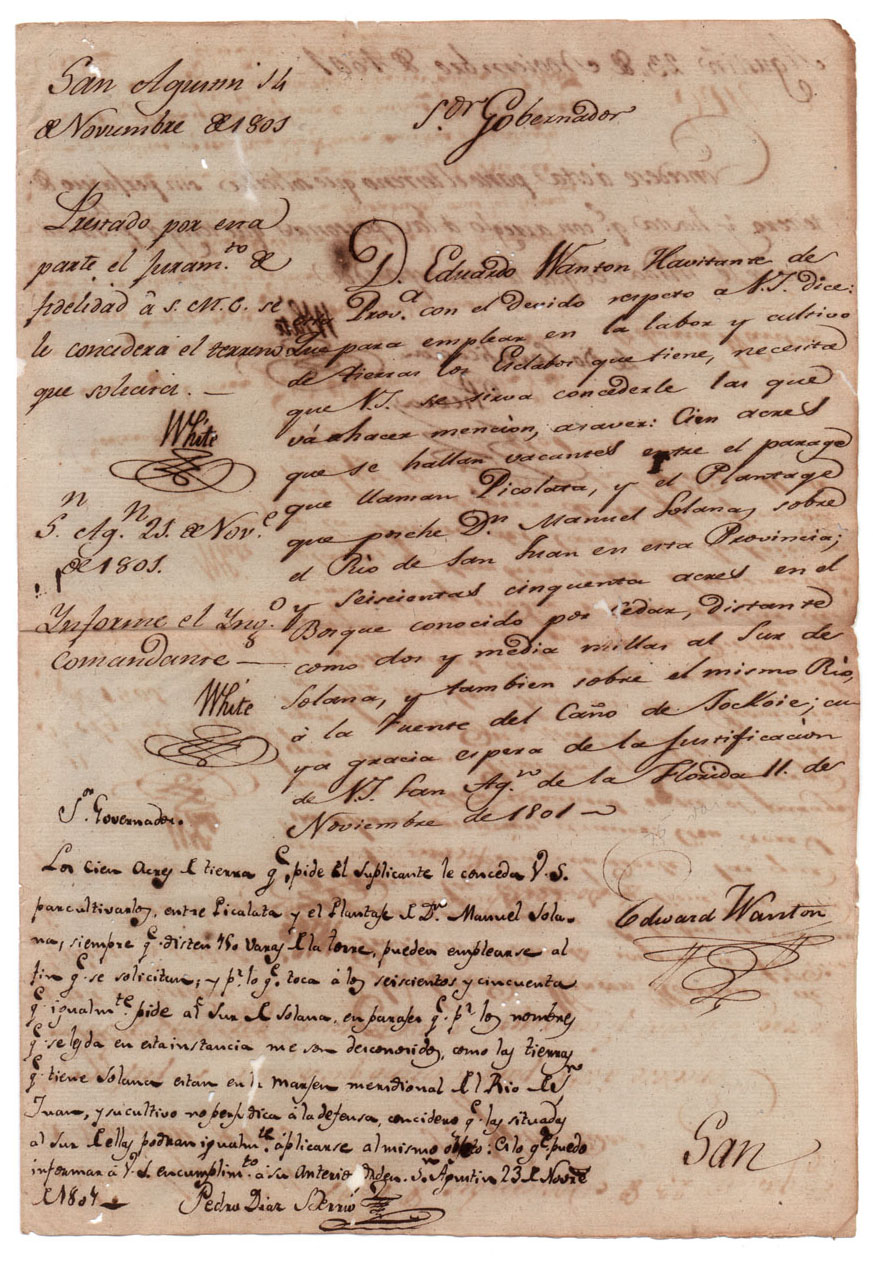 San Agustin 14
de Noviembre de 1801
S.or Gobernador
Prestado por esta
parte el juram.to de
fidelidad â s. M. C. se
le concederá el terreno
que solicita. —
White
S.n Ag.n 21. de Nov.e
de 1801.
Ynforme el Yng.o
Comandante —
White
D. Eduardo Wanton Havitante de
Prov.a con el devido respeto a V.S. dice:
Que para emplear en la labor y cultivo
de tierras los Esclabos que tiene, necesita
que V.S. se sirva concederle las que
vá á hacer mencion, asaver: Cien acres
que se hallan vacantes entre el parage
que llaman Picolata, y el Plantage
que poséhe D.n Manuel Solana, sobre
el Rio de San Juan en esta Provincia;
y seiscientas cinquenta acres en el
Bosque conocido por Cedar, distante
como dos y media millas al Sur de
Solana, y tambien sobre el mismo Rio,
á la Fuente del Caño de Tockoie; cu-
ya gracia espera de la Justificacion
de V.S. San Ag.n de la Florida 11. de
Noviembre de 1801 —
Edward Wanton
S.or Governador.
Los cien Acres de tierra q.e pide el Suplicante le conceda V.S.
par cultivarlos, entre Picalata y el Plantaje de D.n Manuel Sola-
na, siempre q.e disten 750 varas de la torre, pueden emplearse al
fin q.e se solicitan; y p.r lo q.e toca á los seiscientos y cincuenta
q.e igualm.te pide al Sur de Solana, en parajes q.e p.r los nombres
q.e se les da en esta instancia me son desconocidos, como las tierras
q.e tiene Solana estan en la marjen meridional del Rio de S.n
Juan, y su cultivo no perjudica á la defensa, concidero q.e las situadas
al Sur de ellas podran igualm.te áplicarse al mismo objeto. Es lo q.e puedo
informar á V.S. en cumplim.to á su Anterior Orden. S.n Agustin 23 de Nov.re
de 1801 —
Pedro Diaz Berrio
San